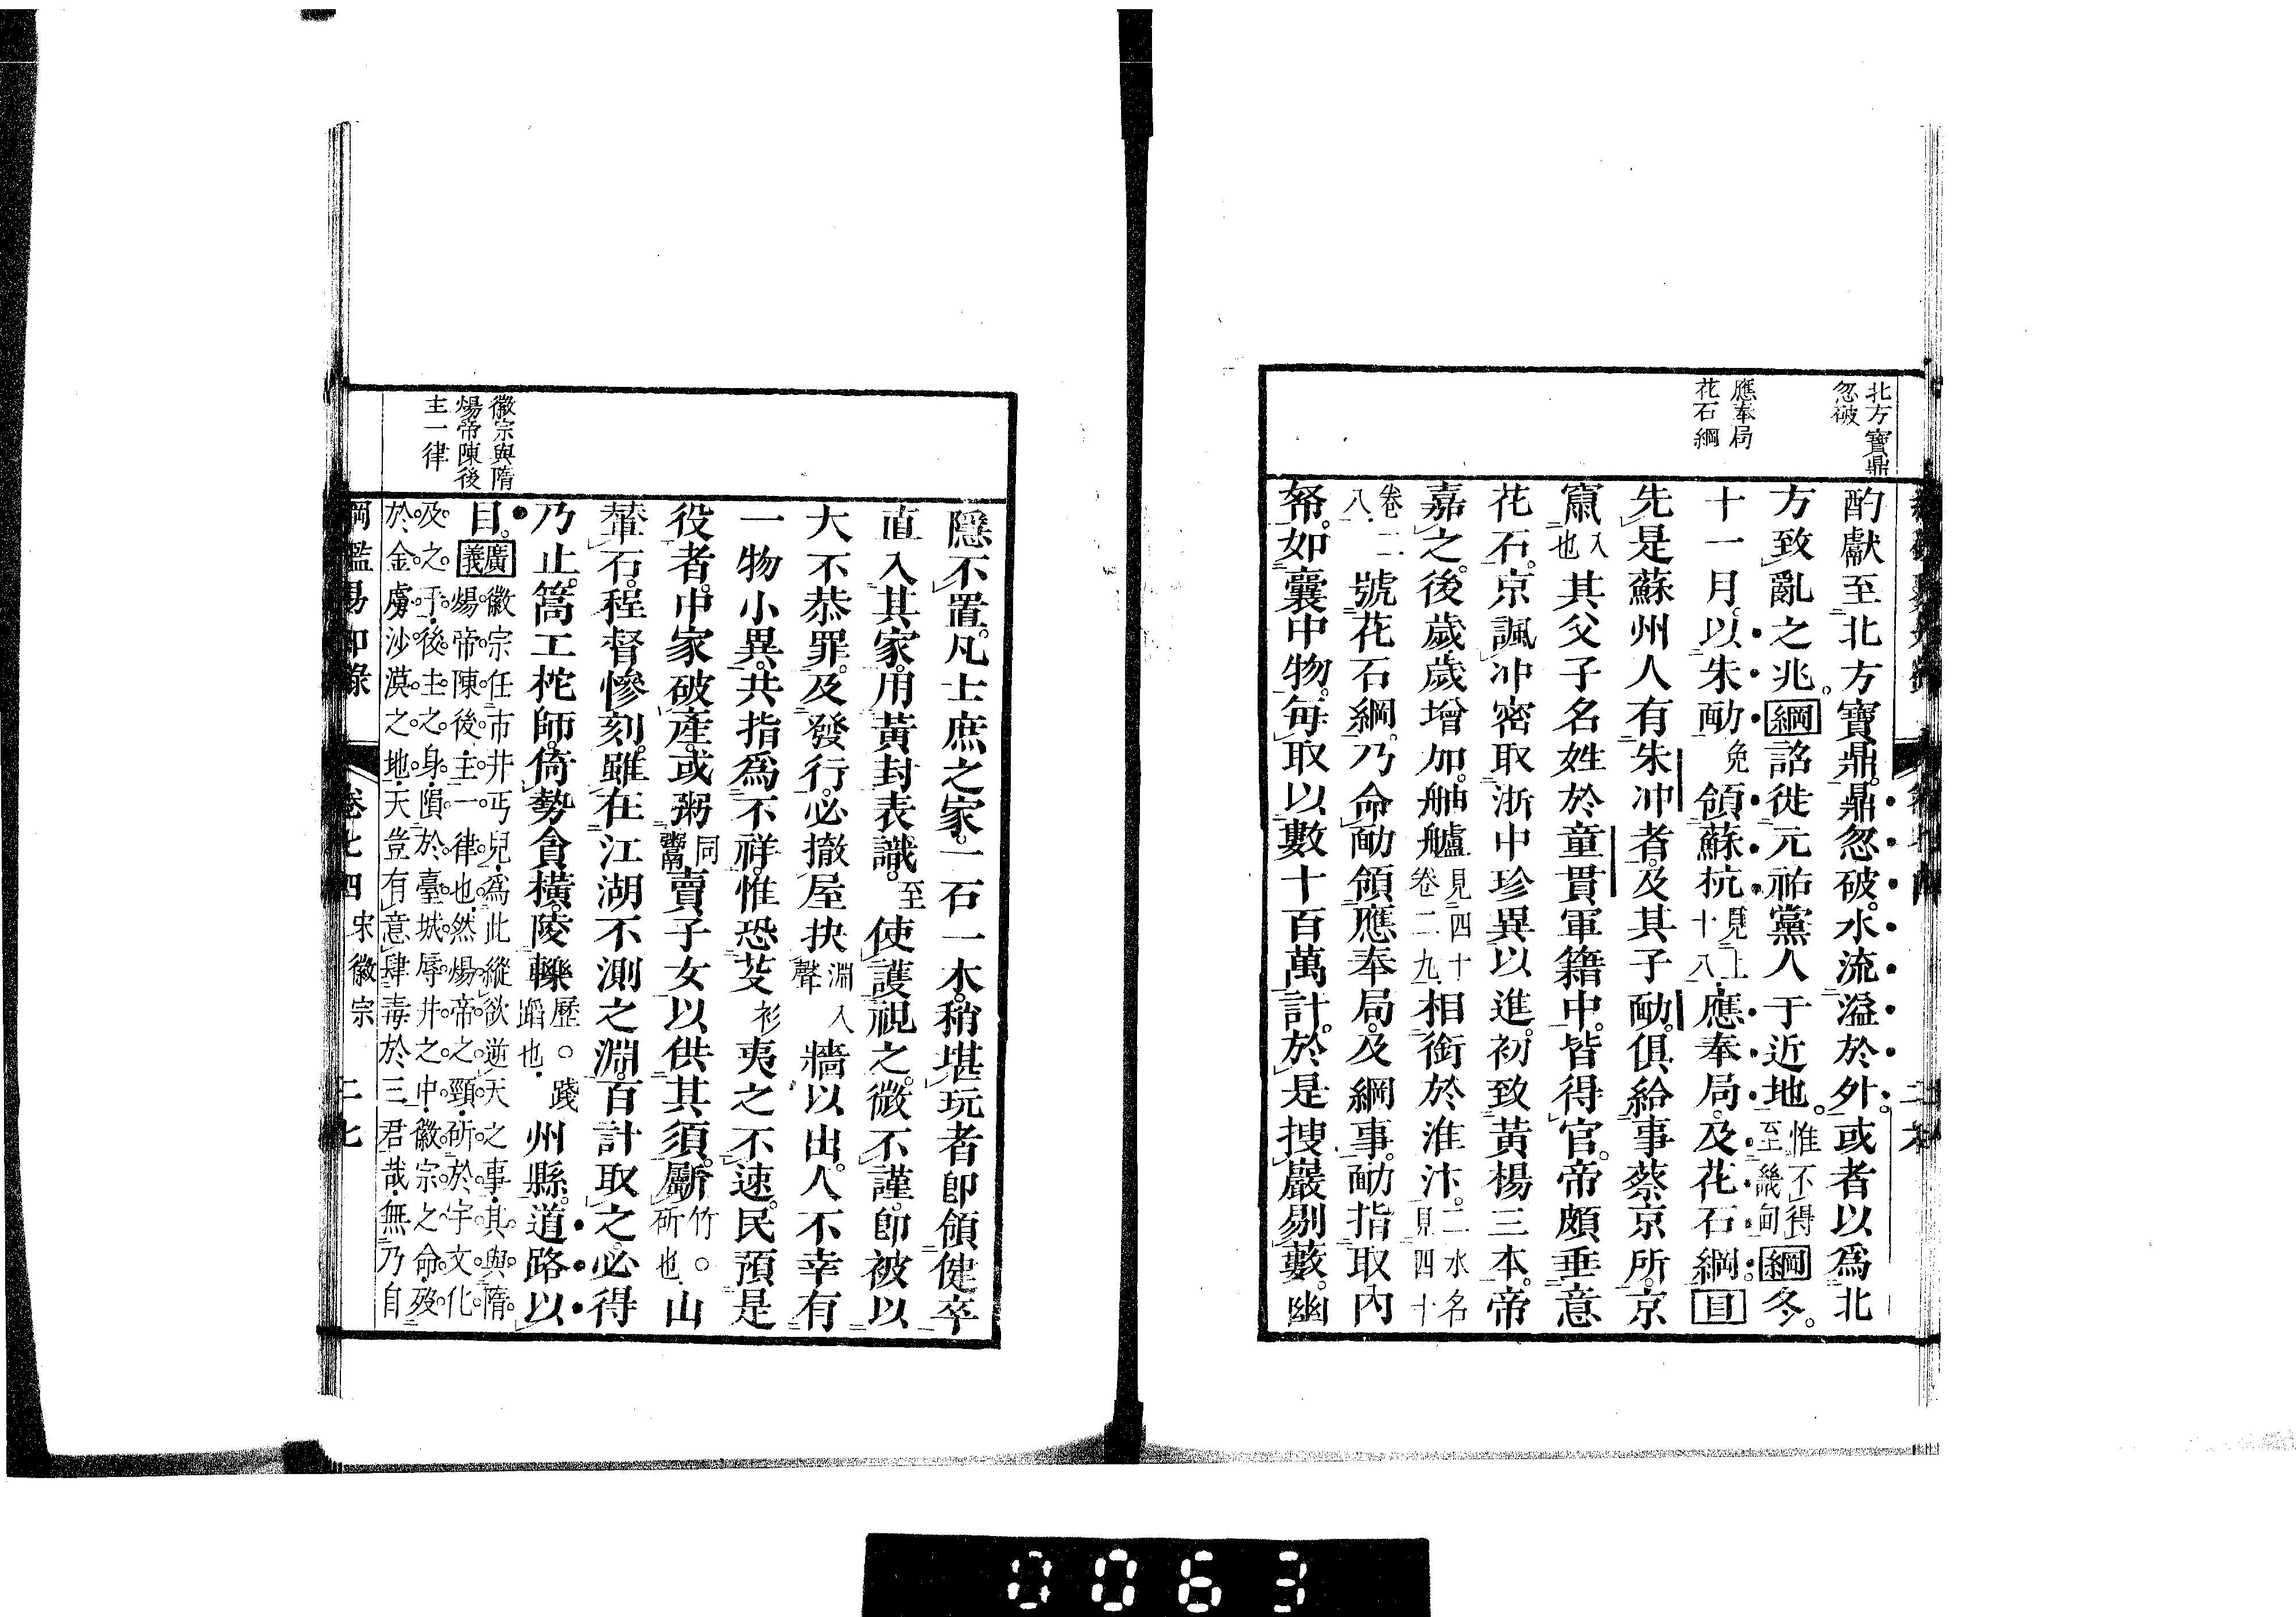 北方寶鼎
忽破
應奉局
花石綱
酌獻至北方寶鼎。鼎忽破。水流溢於外。或者以爲北
方致亂之兆。綱詔徙元祐黨人于近地。惟不得至畿甸綱冬。
十一月。以朱勔免領蘇杭見上十八應奉局。及花石綱。目
先是蘇州人有朱冲者。及其子勔。俱給事蔡京所。京
竄入也其父子名姓於童貫軍籍中。皆得官。帝頗垂意
花石。京諷冲密取浙中珍異以進。初致黃楊三本。帝
嘉之。後歲歲增加。舳艫見四十卷二九相銜於淮汴。二水名見四十
卷二八號花石綱。乃命勔領應奉局。及綱事。勔指取內
帑。如囊中物。每取以數十百萬計。於是搜巖剔藪。幽
隱不置。凡士庶之家。一石一木。稍堪玩者。卽領健卒
直入其家。用黃封表識。至使護視之。微不謹。卽被以
大不恭罪。及發行。必撤屋抉淵入聲牆以出。人不幸有
一物小異。共指爲不祥。惟恐芟衫夷之不速。民預是
役者。中家破產。或粥同鬻賣子女以供其須。斸竹。斫也山
輦石。程督慘刻。雖在江湖不測之淵。百計取之。必得
乃止。篙工柁師。倚勢貪橫。陵轢歷。踐蹈也州縣。道路以
目。廣義徽宗任市井丐兒。爲此縱欲逆天之事。其與隋
煬帝陳後主一律也。然煬帝之頸。斫於宇文化
及之手。後主之身。隕於臺城辱井之中。徽宗之命。歿
於金虜沙漠之地。天豈有意肆毒於三君哉。無乃自
徽宗與隋
煬帝陳後
主一律
綱鑑易知錄 卷七四 宋徽宗 二七
0063